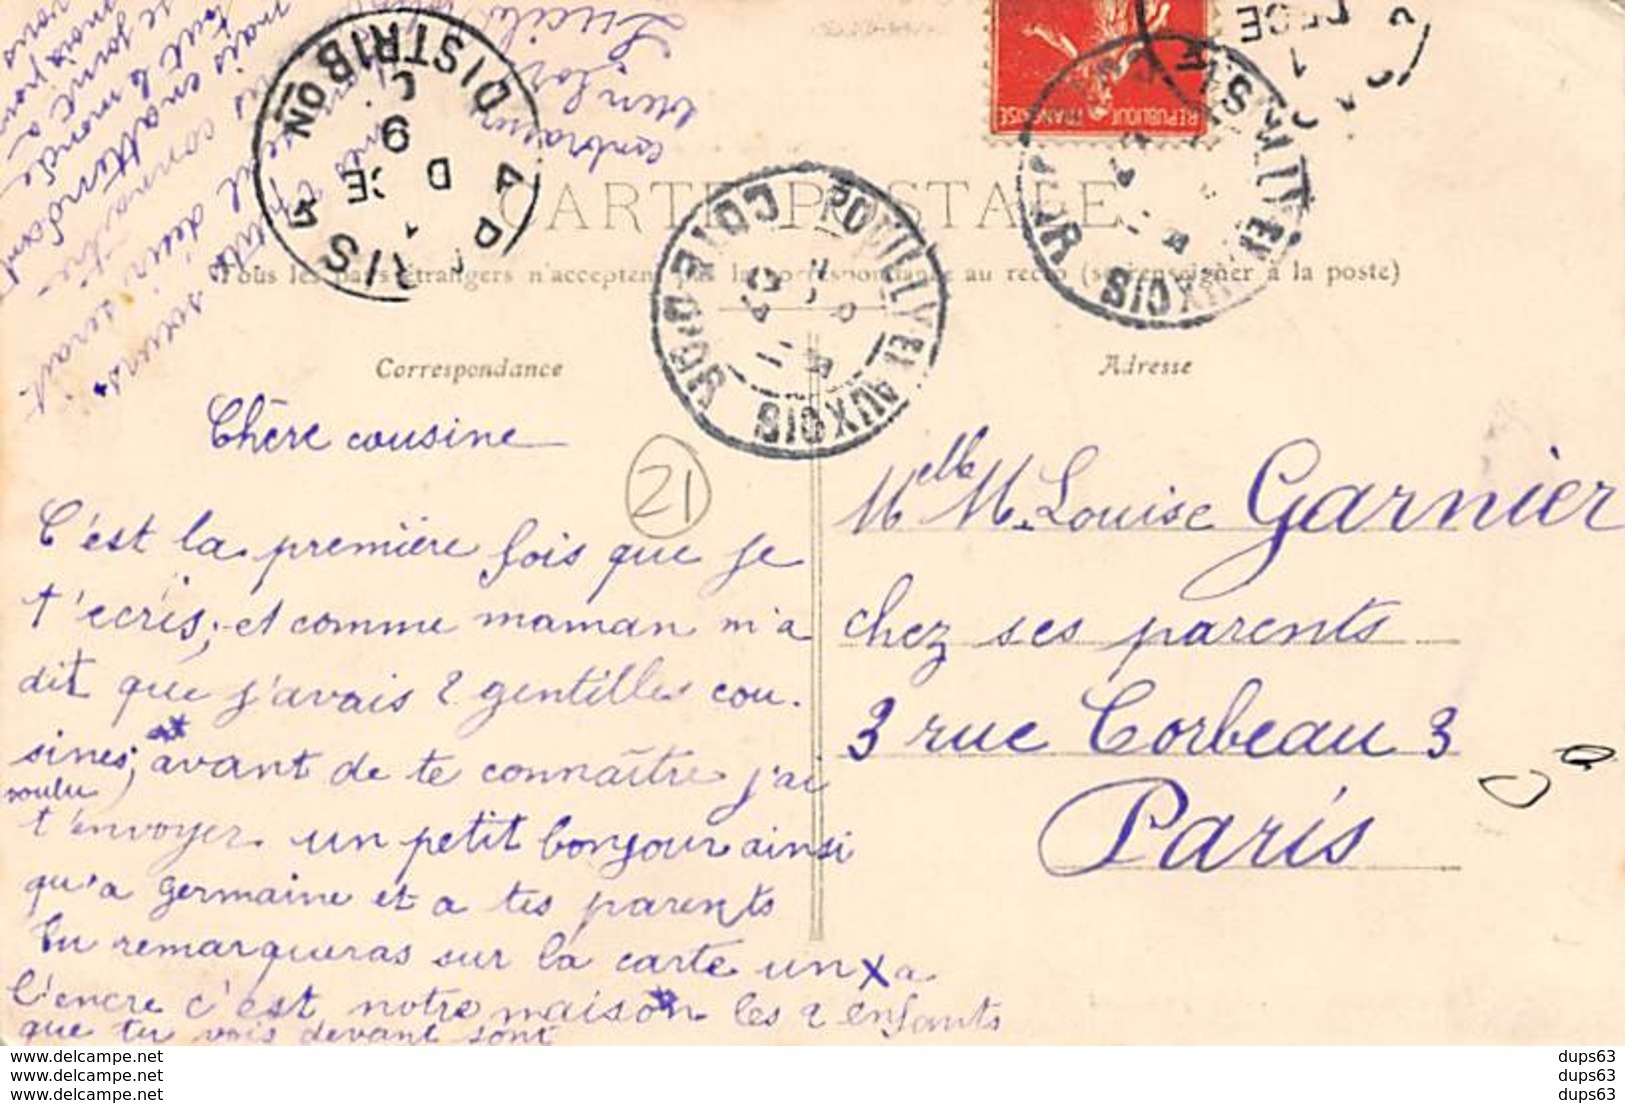 CARTE POSTALE
Tous les pays étrangers n'acceptent pas la correspondance au recto (se renseigner à la poste)
REPUBLIQUE FRANÇAISE
PARIS DISTRIBON
POUILLY EN AUXOIS
COTE-D'OR
POUILLY EN AUXOIS
Correspondance
Adresse
21
Chère cousine
C'est la première fois que je
t'écris, et comme maman m'a
dit que j'avais 2 gentilles cou-
sines, avant de te connaître j'ai
voulu
t'envoyer un petit bonjour ainsi
qu'a germaine et a tes parents
tu remarqueras sur la carte un X a
l'encre c'est notre maison les 2 enfants
que tu vois devant sont
mais en attendant
tout le monde
se joint à
moi pour
vous
embrasser
bien fort
Melle M. Louise Garnier
chez ses parents
3 rue Corbeau 3
Paris
delcampe.net
delcampe.net
delcampe.net
dups63
dups63
dups63